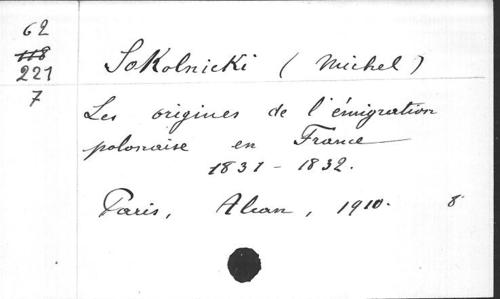 62
118
221
7
Sokolnicki (Michel)
Les origines de l'émigration
polonaise en France
1831-1832.
Paris, Alcan, 1910. 8°